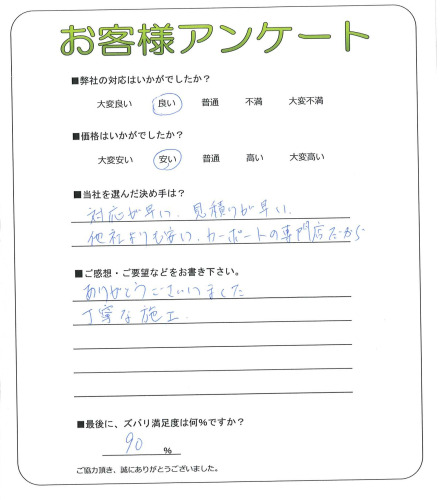 お客様アンケート
■弊社の対応はいかがでしたか？
大変良い 良い 普通 不満 大変不満
■価格はいかがでしたか？
大変安い 安い 普通 高い 大変高い
■当社を選んだ決め手は？
対応が早い、見積りが早い、
他社よりも安い、カーポートの専門店だから
■ご感想・ご要望などをお書き下さい。
ありがとうございました
丁寧な施工
■最後に、ズバリ満足度は何％ですか？
90 %
ご協力頂き、誠にありがとうございました。